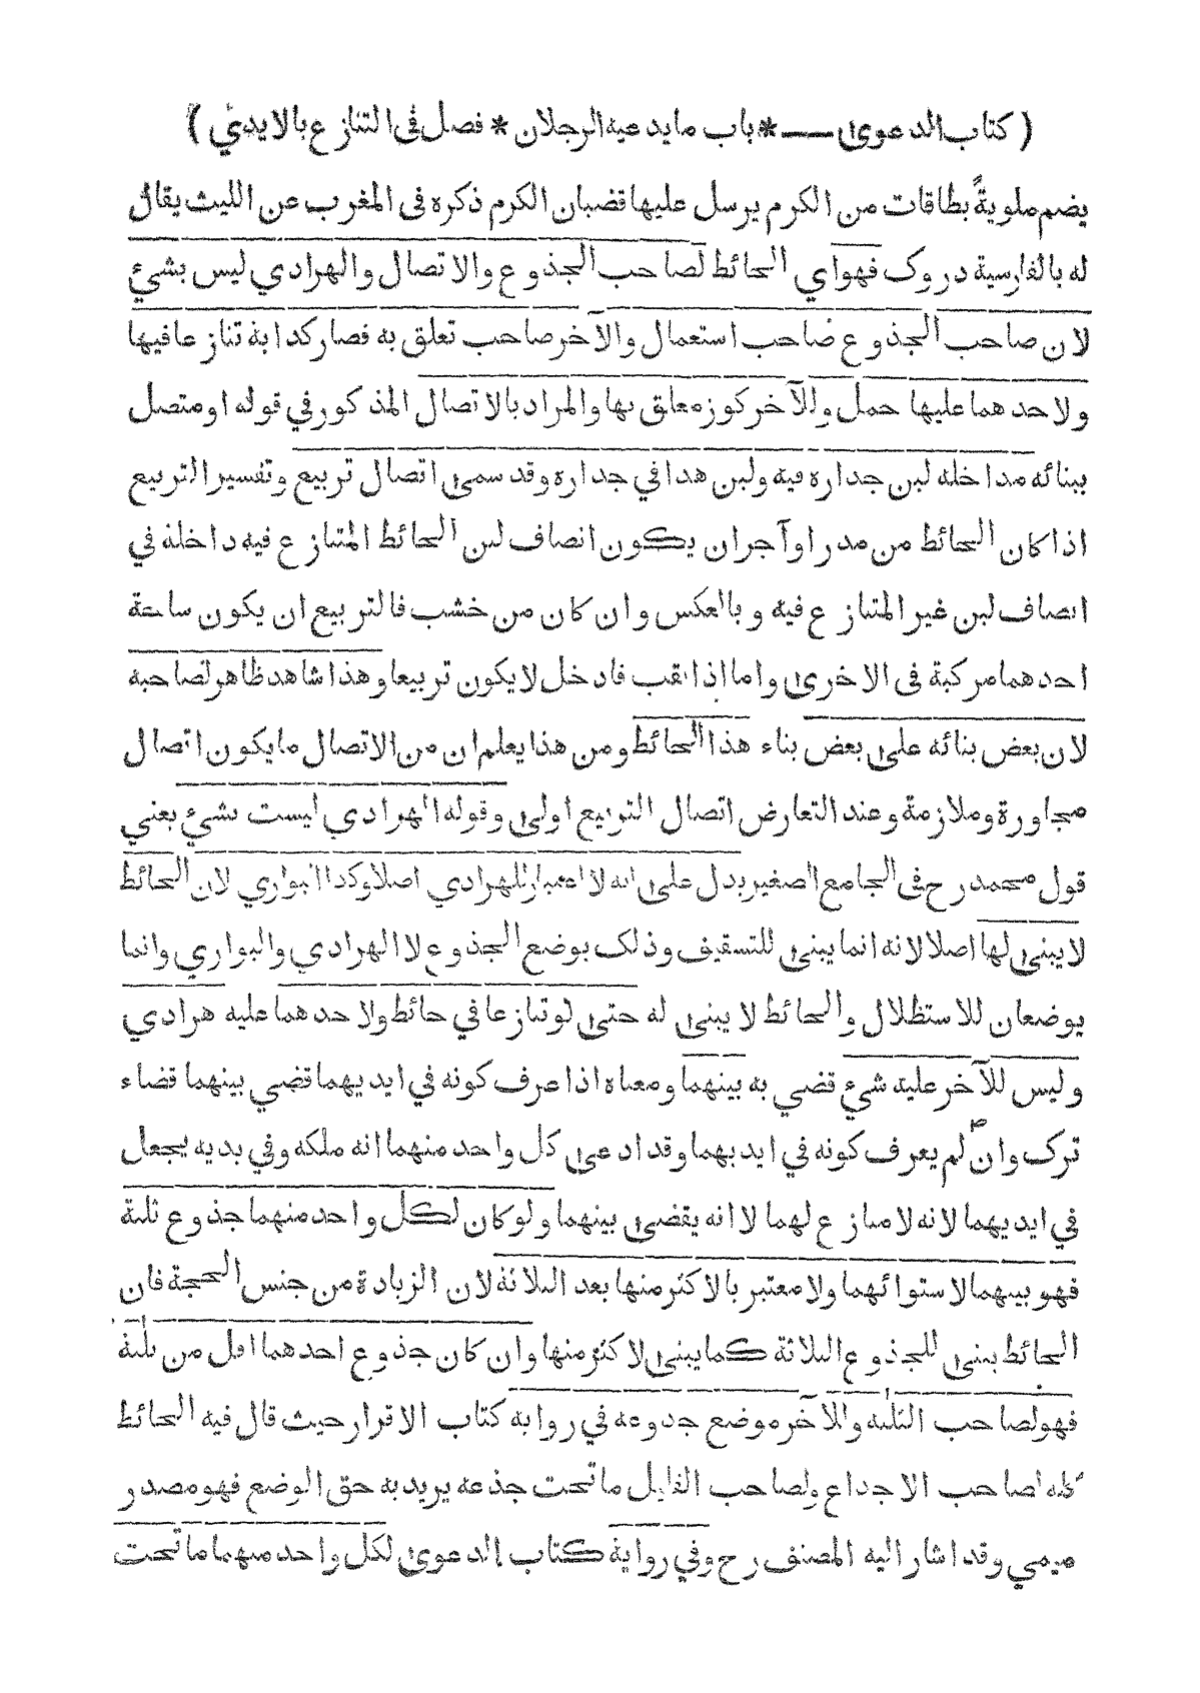 ( كتاب الدعوى — * باب ما يدعيه الرجلان * فصل في التنازع بالايدي )
يضم ملوية بطاقات من الكرم يرسل عليها قضبان الكرم ذكره في المغرب عن الليث يقال
له بالفارسية دروك فهو اي الحائط لصاحب الجذوع والاتصال والهرادي ليس بشئ
لان صاحب الجذوع صاحب استعمال والآخر صاحب تعلق به فصار كدابة تنازعا فيها
ولاحدهما عليها حمل وللآخر كوز معلق بها والمراد بالاتصال المذكور في قوله او متصل
ببنائه مداخلة لبن جداره فيه ولبن هذا في جداره وقد سمى اتصال تربيع وتفسير التربيع
اذا كان الحائط من مدر او آجر ان يكون انصاف لبن الحائط المتنازع فيه داخلة في
انصاف لبن غير المتنازع فيه وبالعكس وان كان من خشب فالتربيع ان يكون ساحة
احدهما مركبة في الاخرى واما اذا نقب فادخل لا يكون تربيعا وهذا شاهد ظاهر لصاحبه
لان بعض بنائه على بعض بناء هذا الحائط ومن هذا يعلم ان من الاتصال ما يكون اتصال
مجاورة وملازمة وعند التعارض اتصال التربيع اولى وقوله الهرادي ليست بشئ يعني
قول محمد رح في الجامع الصغير يدل على انه لا اعتبار للهرادي اصلا وكذا البواري لان الحائط
لا يبنى لها اصلا لانه انما يبنى للتسقيف وذلك بوضع الجذوع لا الهرادي والبواري وانما
يوضعان للاستظلال والحائط لا يبنى له حتى لو تنازعا في حائط ولاحدهما عليه هرادي
وليس للآخر عليه شئ قضي به بينهما ومعناه اذا عرف كونه في ايديهما قضي بينهما قضاء
ترك وان لم يعرف كونه في ايديهما وقد ادعى كل واحد منهما انه ملكه وفي يديه يجعل
في ايديهما لانه لا منازع لهما لا انه يقضى بينهما ولو كان لكل واحد منهما جذوع ثلثة
فهو بينهما لاستوائهما ولا معتبر بالاكثر منها بعد الثلاثة لان الزيادة من جنس الحجة فان
الحائط يبنى للجذوع الثلاثة كما يبنى لاكثر منها وان كان جذوع احدهما اقل من ثلثة
فهو لصاحب الثلثة وللآخر موضع جذوعه في رواية كتاب الاقرار حيث قال فيه الحائط
كله لصاحب الاجذاع ولصاحب القليل ما تحت جذعه يريد به حق الوضع فهو مصدر
ميمي وقد اشار اليه المصنف رح وفي رواية كتاب الدعوى لكل واحد منهما ما تحت